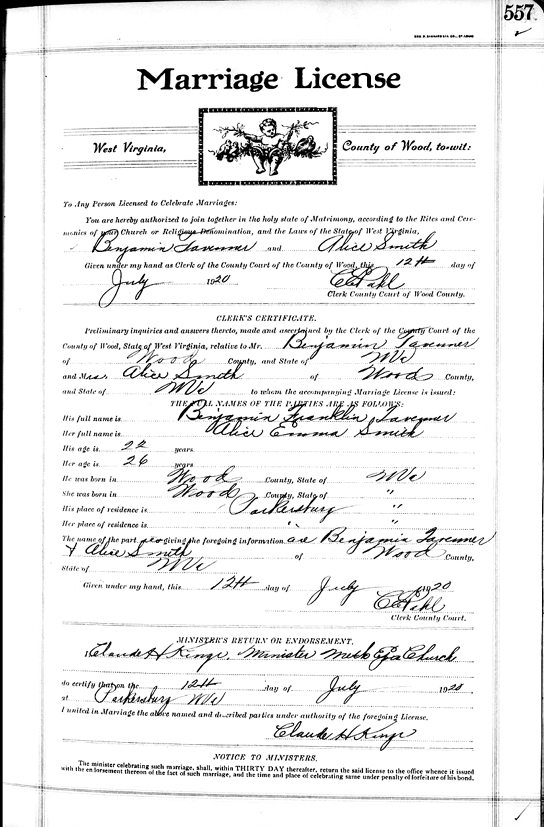 557
Marriage License
West Virginia, County of Wood, to-wit:
To Any Person Licensed to Celebrate Marriages:
You are hereby authorized to join together in the holy state of Matrimony, according to the Rites and Cere-
monies of your Church or Religious Denomination, and the Laws of the State of West Virginia,
Benjamin Tavenner and Alice Smith
Given under my hand as Clerk of the County Court of the County of Wood, this 12th day of
July 1920
Clerk County Court of Wood County.
CLERK'S CERTIFICATE.
Preliminary inquiries and answers thereto, made and ascertained by the Clerk of the County Court of the
County of Wood, State of West Virginia, relative to Mr. Benjamin Tavenner
of Wood County, and State of WVa
and Mrs. Alice Smith of Wood County,
and State of WVa to whom the accompanying Marriage License is issued:
THE FULL NAMES OF THE PARTIES ARE AS FOLLOWS:
His full name is Benjamin Franklin Tavenner
Her full name is Alice Emma Smith
His age is 22 years.
Her age is 26 years
He was born in Wood County, State of WVa
She was born in Wood County, State of "
His place of residence is Parkersburg "
Her place of residence is " "
The name of the part giving the foregoing information are Benjamin Tavenner
& Alice Smith of Wood County,
State of WVa
Given under my hand, this 12th day of July 1920
Clerk County Court.
MINISTER'S RETURN OR ENDORSEMENT.
I Claude H King, Minister Meth Church
do certify that on the 12th day of July 1920,
at Parkersburg WVa
I united in Marriage the above named and described parties under authority of the foregoing License.
Claude H King
NOTICE TO MINISTERS.
The minister celebrating such marriage, shall, within THIRTY DAY thereafter, return the said license to the office whence it issued
with the endorsement thereon of the fact of such marriage, and the time and place of celebrating same under penalty of forfeiture of his bond.